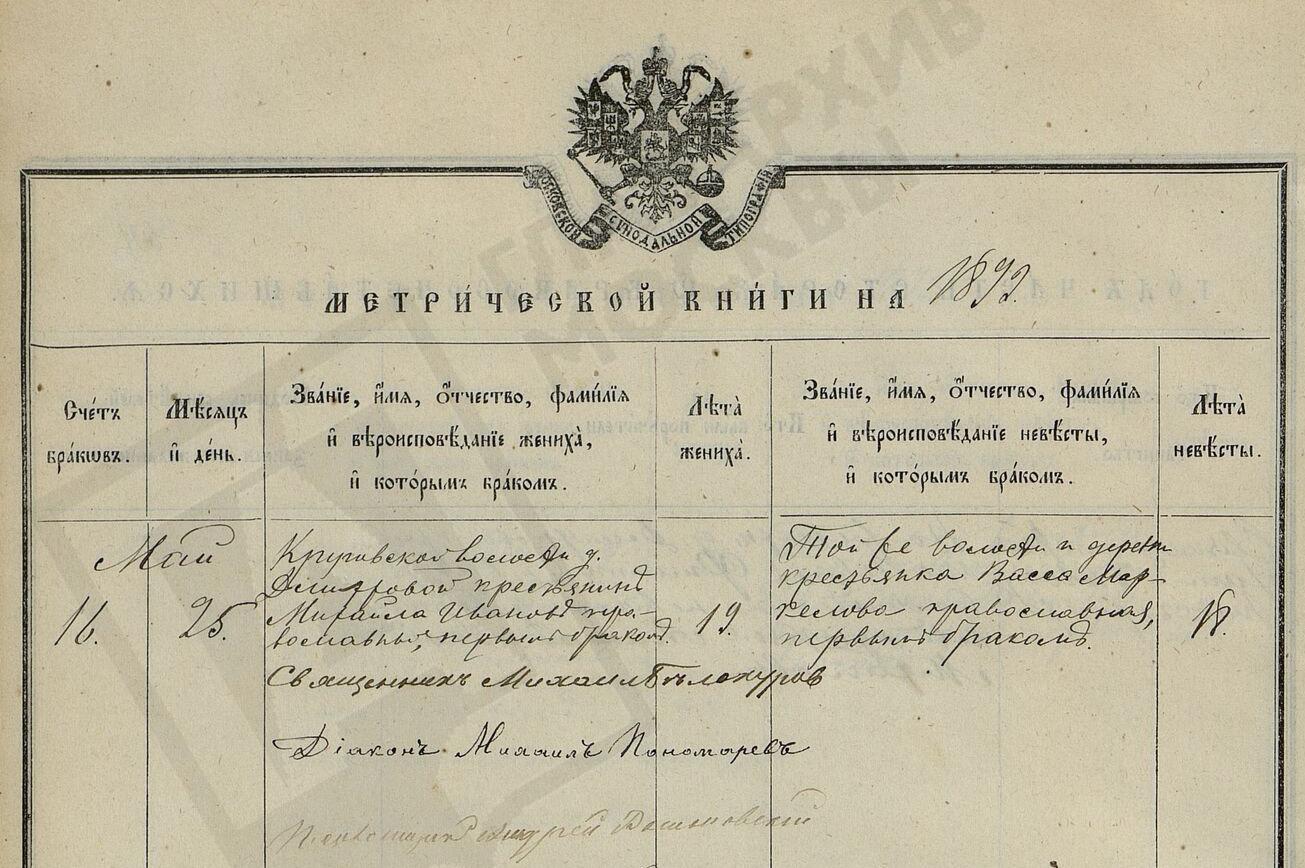 МОСКОВСКОЙ СѴНОДАЛЬНОЙ ТИПОГРАФІИ
ГЛАВАРХИВ
МОСКВЫ
МЕТРИ́ЧЕСКОЙ КНИ́ГИ НА 1892.
Сче́тъ бра́кѡвъ.
Мѣ́сяцъ и де́нь.
Зва́нїе, и́мя, ѻ́тчество, фами́лїя
и вѣроисповѣ́данїе жениха̀,
и кото́рымъ бра́комъ.
Лѣта̀ жениха̀.
Зва́нїе, и́мя, ѻ́тчество, фами́лїя
и вѣроисповѣ́данїе невѣ́сты,
и кото́рымъ бра́комъ.
Лѣта̀ невѣ́сты.
Май
16.
25.
волости д.
крестьянинъ
Михаила Ивановъ пра-
вославный, первымъ бракомъ.
19.
Той же волости и деревни
крестьянка Васса Мар-
келова православная,
первымъ бракомъ.
18.
Священникъ Михаилъ Бѣлокуров
Діаконъ Михаилъ Пономаревъ
Андрей